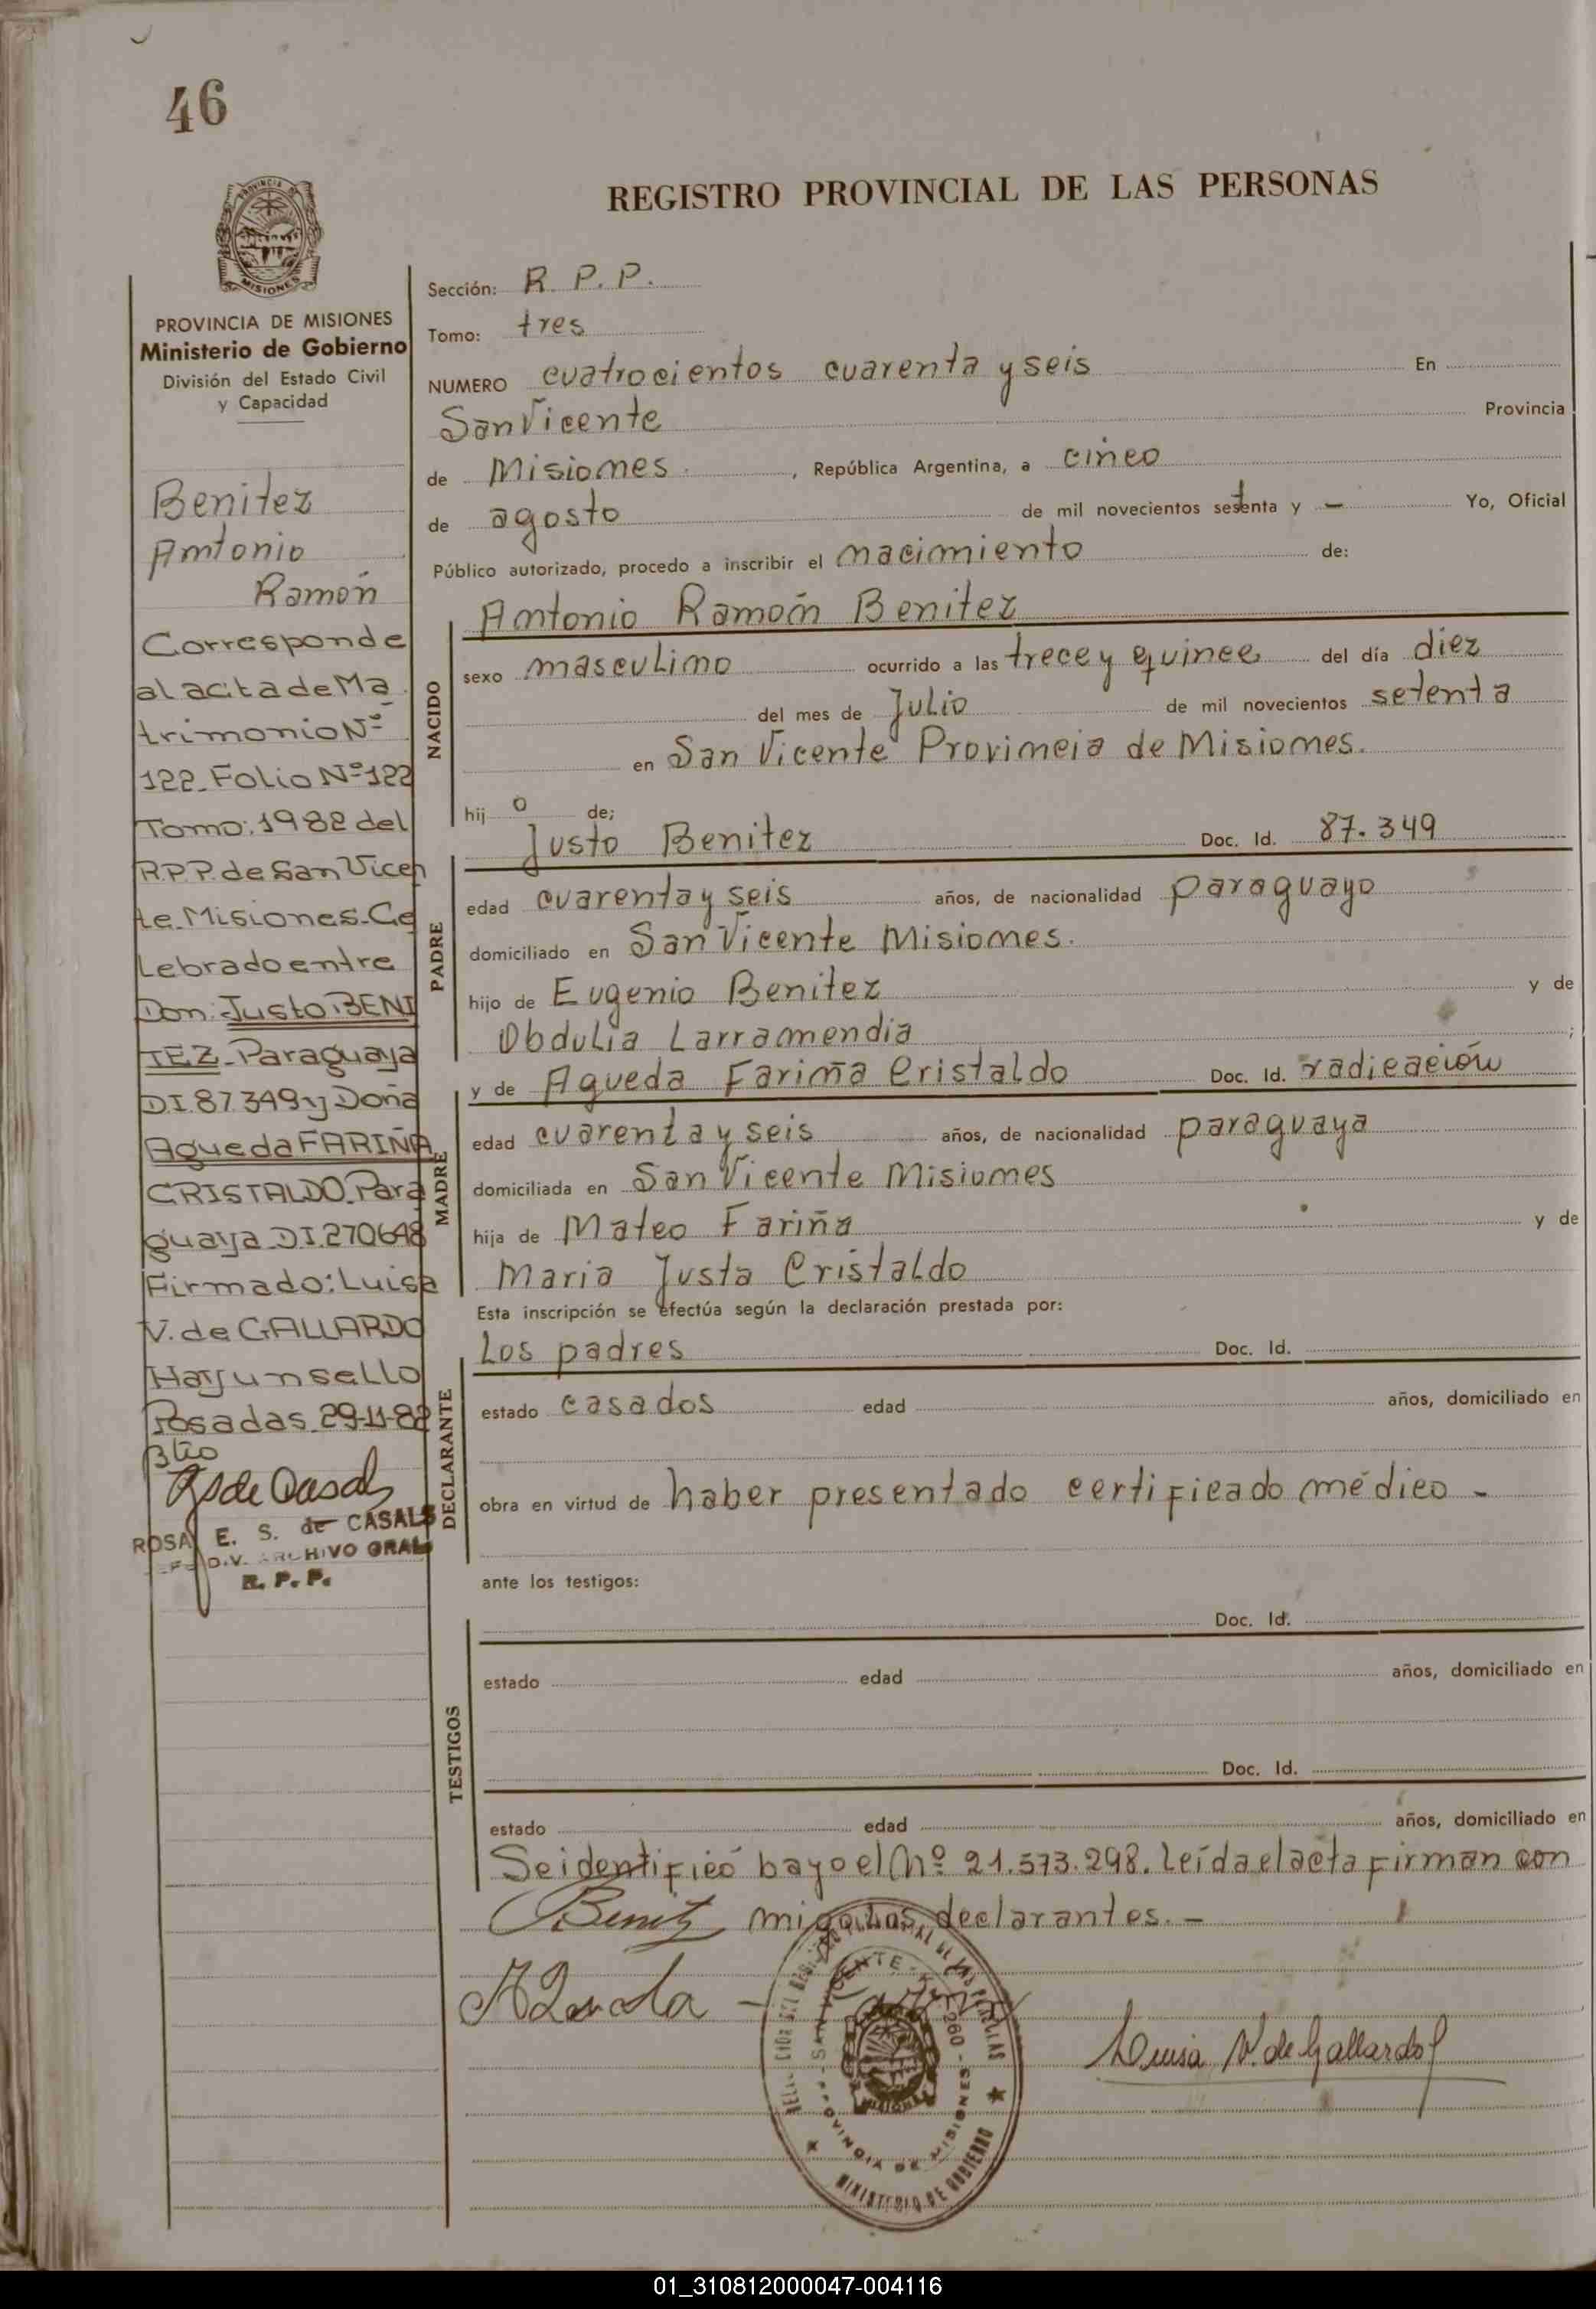 46
REGISTRO PROVINCIAL DE LAS PERSONAS
PROVINCIA DE
MISIONES
PROVINCIA DE MISIONES
Ministerio de Gobierno
División del Estado Civil
y Capacidad
Benitez
Antonio
Ramón
Corresponde
al acta de Ma
trimonio Nº
122_Folio Nº122
Tomo:1982 del
R.P.P. de San Vicen
te_Misiones_Ce
lebrado entre
Don: Justo BENI
TEZ_Paraguaya
D.I.87349 y Doña
Agueda FARIÑA
CRISTALDO_Para
guaya_D.I.270648
Firmado: Luisa
V. de GALLARDO
Hay un sello
Posadas_29-11-82
ROSA E. S. de CASALS
DIV. ARCHIVO GRAL
R. P. P.
Sección: R. P. P.
Tomo: tres
NUMERO cuatrocientos cuarenta y seis En
San Vicente Provincia
de Misiones. , República Argentina, a cinco
de agosto de mil novecientos setenta y - Yo, Oficial
Público autorizado, procedo a inscribir el nacimiento de:
NACIDO
Antonio Ramón Benitez
sexo masculino ocurrido a las trece y quince del día diez
del mes de Julio de mil novecientos setenta
en San Vicente Provincia de Misiones.
hij o de;
PADRE
Justo Benitez Doc. Id. 87.349
edad cuarenta y seis años, de nacionalidad paraguayo
domiciliado en San Vicente Misiones.
hijo de Eugenio Benitez y de
Obdulia Larramendia ;
MADRE
y de Agueda Fariña Cristaldo Doc. Id. radicación
edad cuarenta y seis años, de nacionalidad paraguaya
domiciliada en San Vicente Misiones
hija de Mateo Fariña y de
Maria Justa Cristaldo
Esta inscripción se efectúa según la declaración prestada por:
DECLARANTE
Los padres Doc. Id.
estado casados edad años, domiciliado en
obra en virtud de haber presentado certificado médico -
ante los testigos:
TESTIGOS
Doc. Id.
estado edad años, domiciliado en
Doc. Id.
estado edad años, domiciliado en
Se identificó bayo el Nº 21.573.298. Leída el acta firman con
migo los declarantes. -
Benitz
SAN VICENTE
PROVINCIA DE MISIONES
MINISTERIO DE GOBIERNO
Luisa V. de Gallardo
01_310812000047-004116